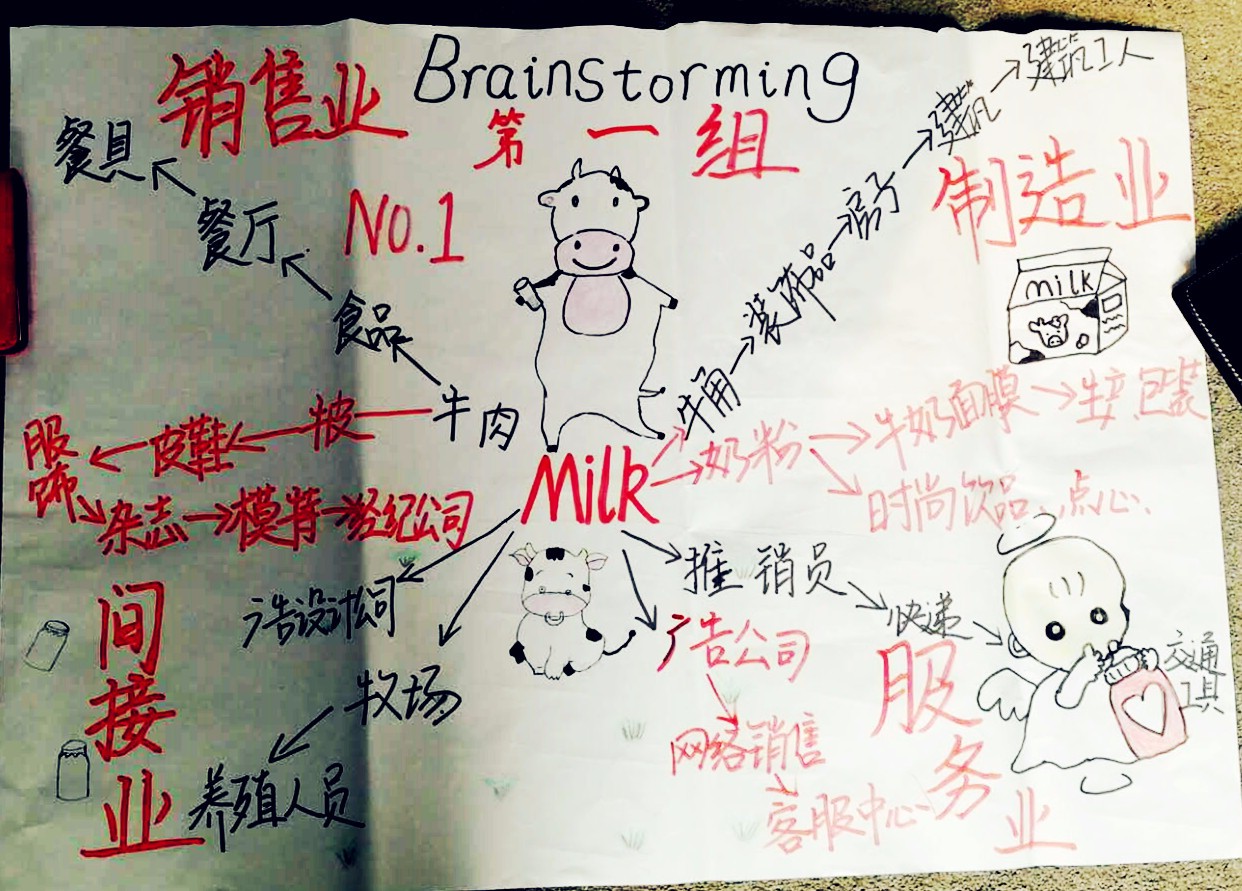 Brainstorming
销售业
第一组
NO.1
餐具
餐厅
食品
牛肉
皮鞋
服饰
杂志
模特
经纪公司
建筑工人
建筑
房子
装饰品
制造业
milk
Milk
奶粉
牛奶面膜
包装
时尚饮品、点心、
推销员
快递
交通工具
广告公司
网络销售
客服中心
服务业
广告设计公司
牧场
养殖人员
间接业